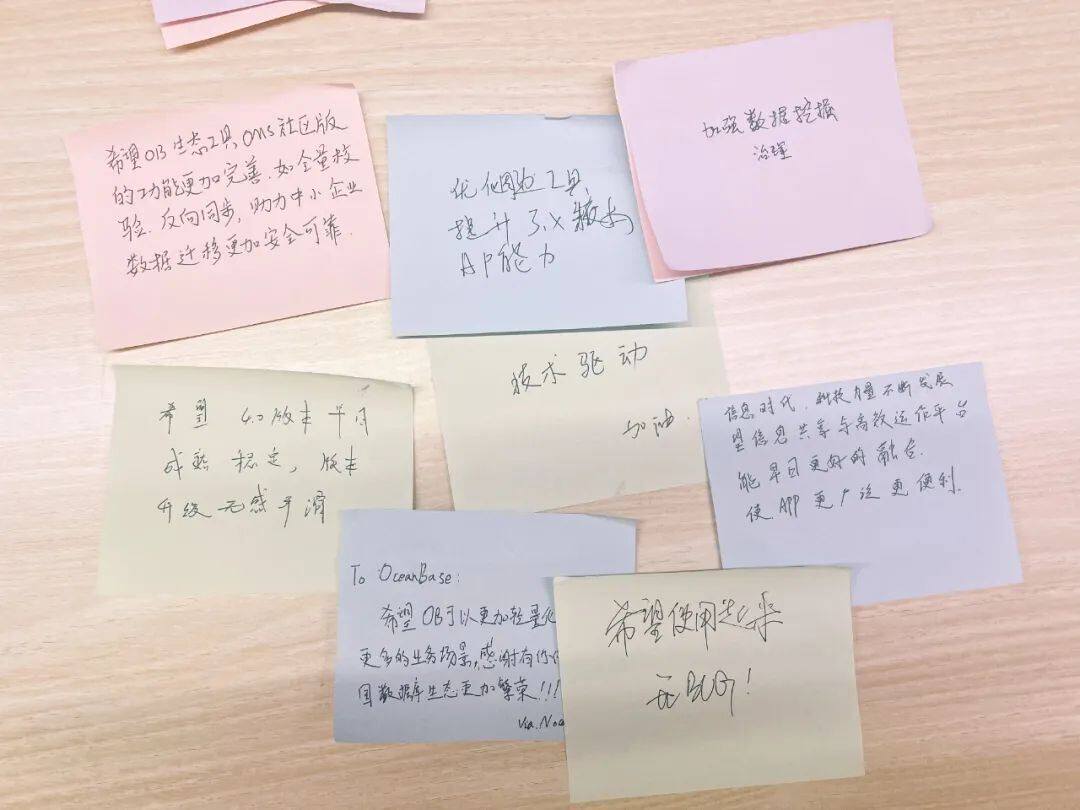 希望OB生态工具OMS社区版
的功能更加完善.如全量校
验.反向同步,助力中小企业
数据迁移更加安全可靠.
优化周边工具,
提升
AP能力
加强数据挖掘
治理
技术驱动
加油.
希望 4.0版本早日
成熟稳定,版本
升级无感平滑
信息时代.科技力量不断发展
望信息共享与高效运作平台
能早日更好的融合.
使APP更广泛更便利.
To OceanBase:
希望OB可以更加轻量化
更多的业务场景,感谢有你
国数据库生态更加繁荣!!!
Via.
希望使用起来
无BUG!